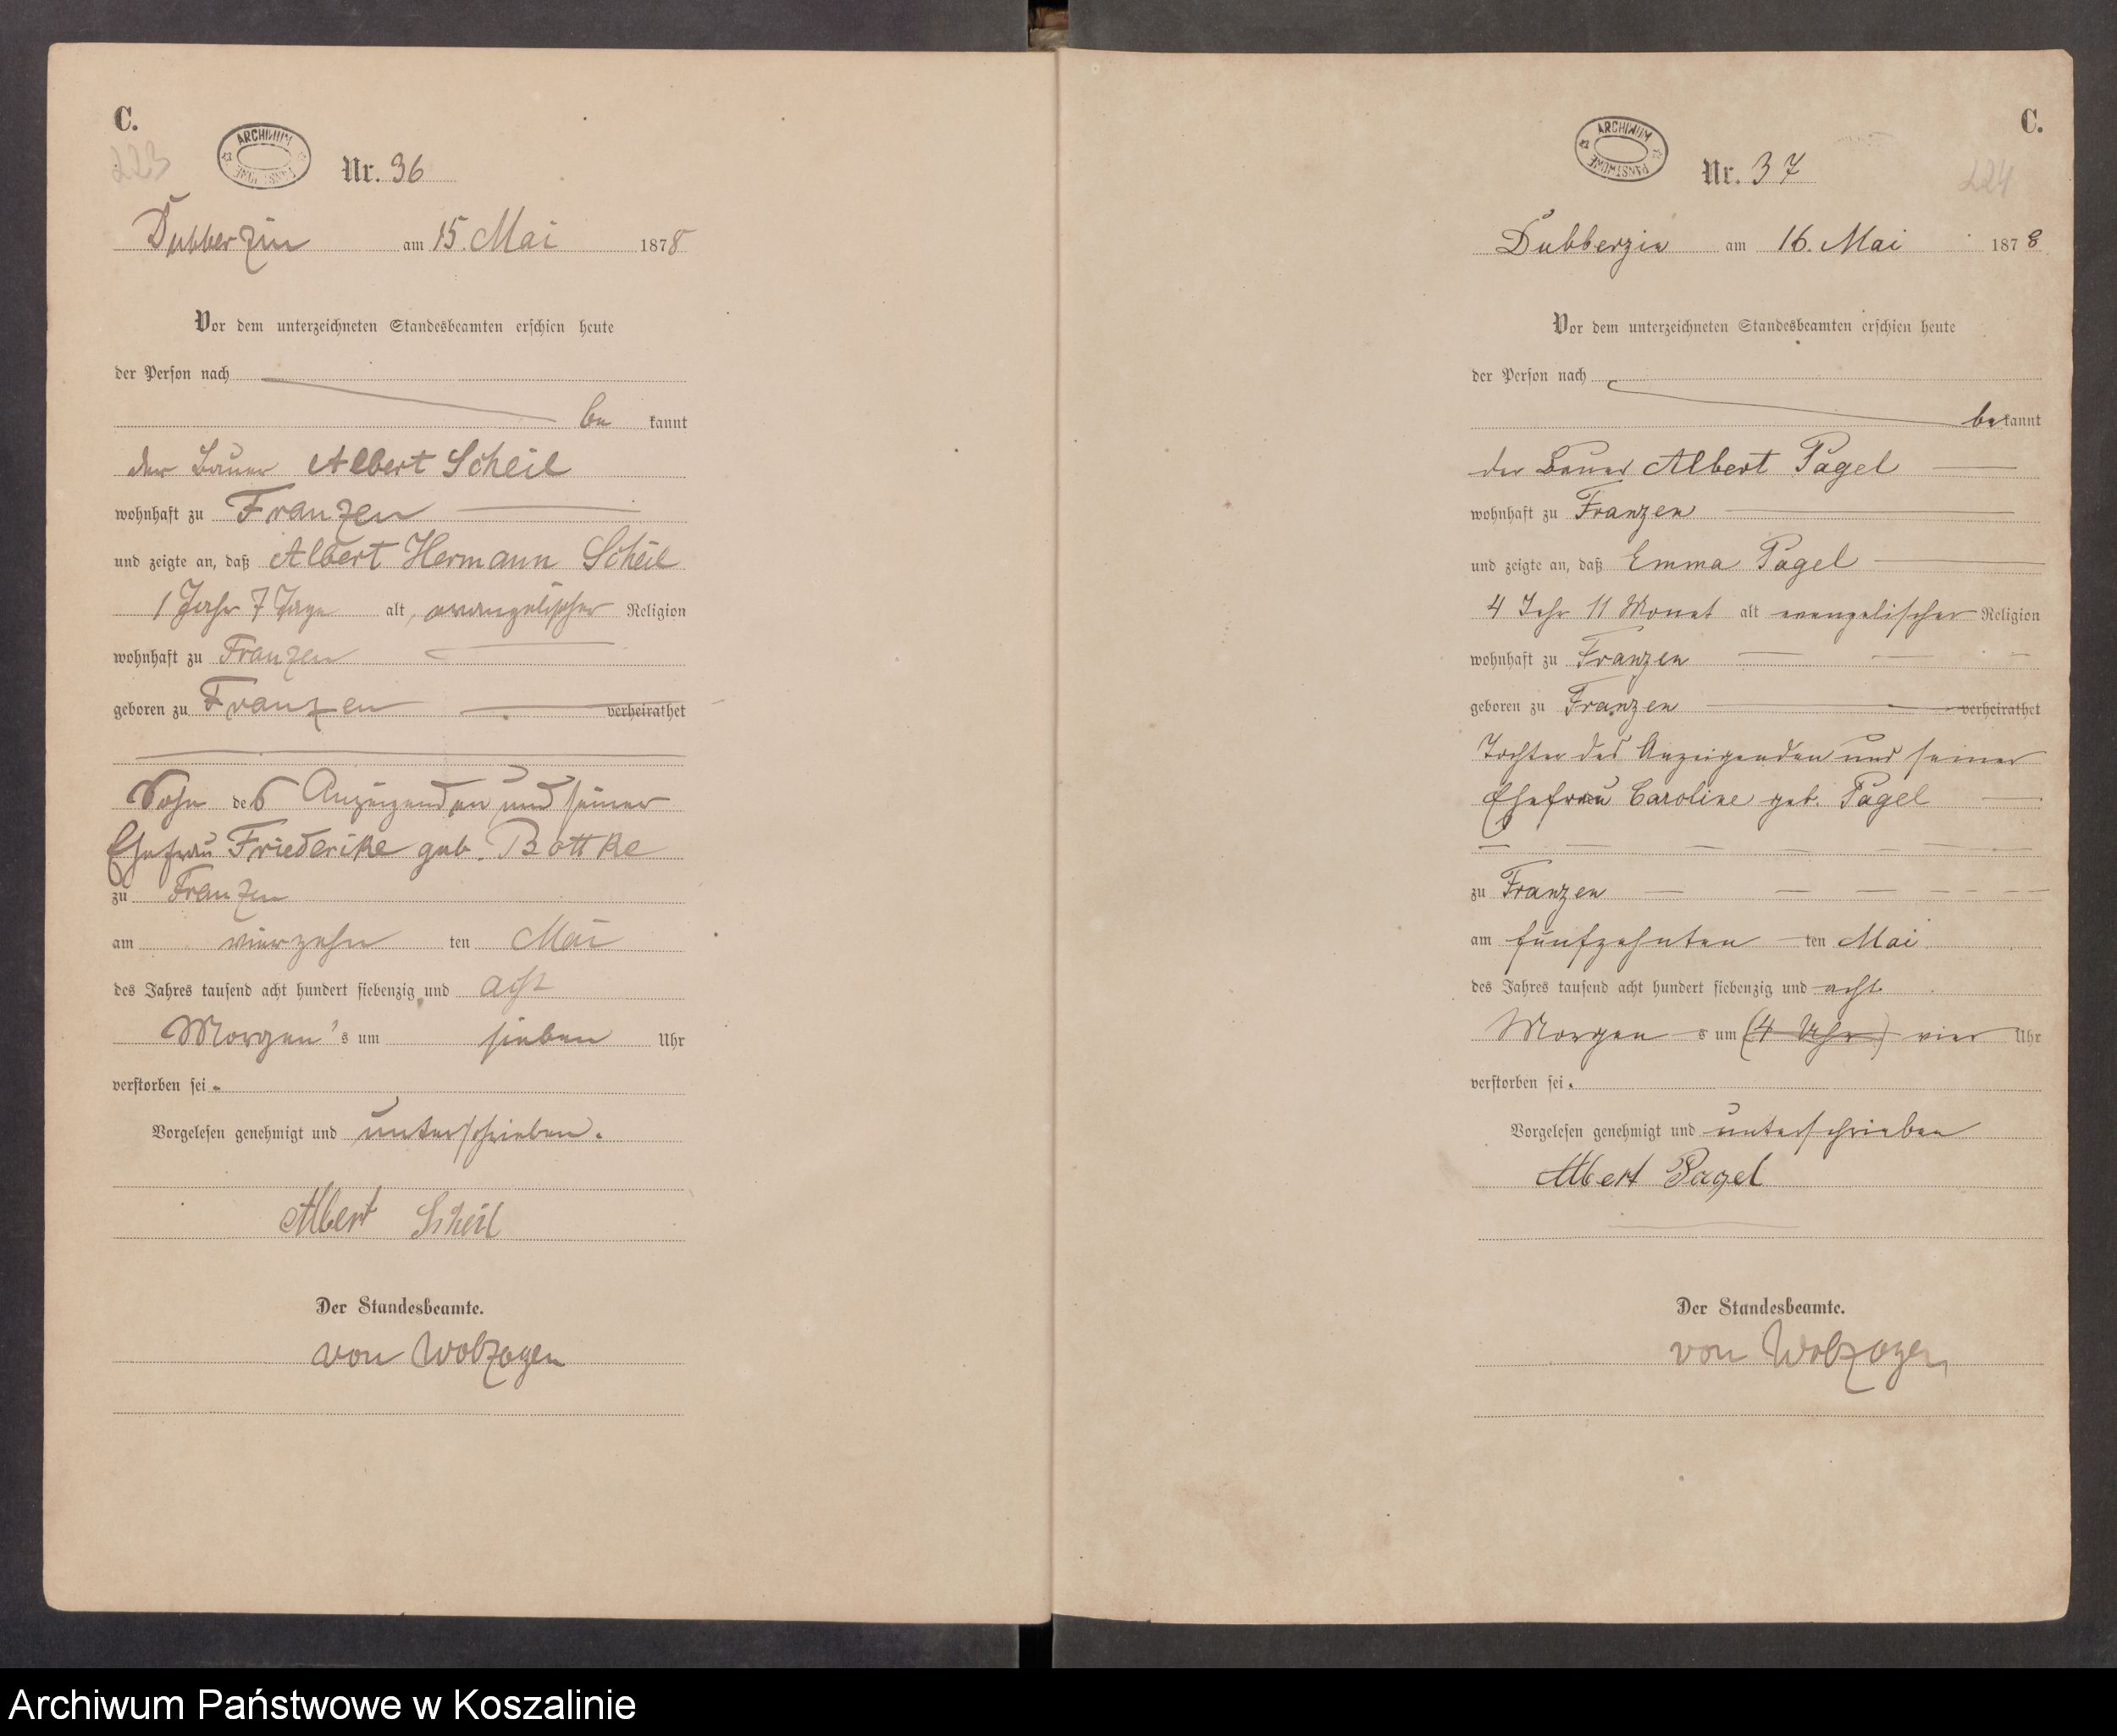 C.
223
ARCHIWUM PAŃSTWOWE
Nr. 36
Dubberzin am 15. Mai 1878
Vor dem unterzeichneten Standesbeamten erschien heute
der Person nach
be kannt
der Bauer Albert Scheil
wohnhaft zu Franzen
und zeigte an, daß Albert Hermann Scheil
1 Jahr 7 Tage alt, evangelischer Religion
wohnhaft zu Franzen
geboren zu Franzen verheirathet
Sohn des Anzeigenden und seiner
Ehefrau Friederike geb. Bottke
zu Franzen
am vierzehn ten Mai
des Jahres tausend acht hundert siebenzig und acht
Morgen's um sieben Uhr
verstorben sei.
Vorgelesen genehmigt und unterschrieben.
Albert Scheil
Der Standesbeamte.
von Wolzogen
C.
224
ARCHIWUM PAŃSTWOWE
Nr. 37
Dubberzin am 16. Mai 1878
Vor dem unterzeichneten Standesbeamten erschien heute
der Person nach
bekannt
der Bauer Albert Pagel
wohnhaft zu Franzen
und zeigte an, daß Emma Pagel
4 Jahr 11 Monat alt evangelischer Religion
wohnhaft zu Franzen
geboren zu Franzen verheirathet
Tochter des Anzeigenden und seiner
Ehefrau Caroline geb. Pagel
zu Franzen
am fünfzehnten ten Mai
des Jahres tausend acht hundert siebenzig und acht
Morgen s um (4 Uhr) vier Uhr
verstorben sei.
Vorgelesen genehmigt und unterschrieben
Albert Pagel
Der Standesbeamte.
von Wolzogen
Archiwum Państwowe w Koszalinie